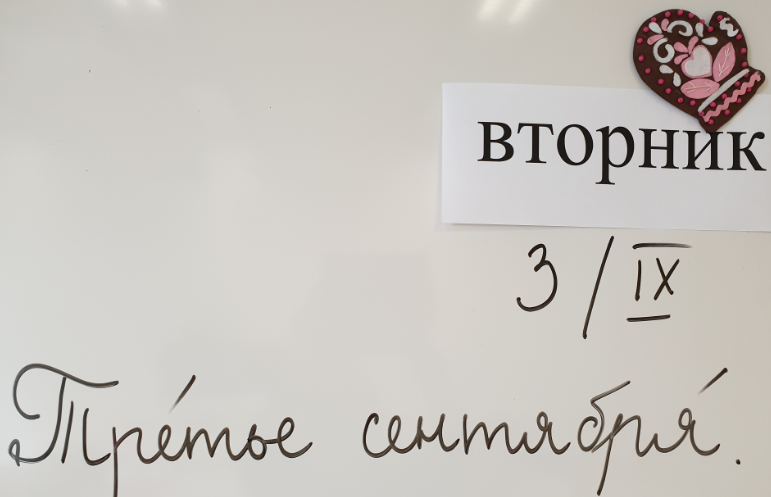 вторник
3/IX
Тре́тье сентября́.